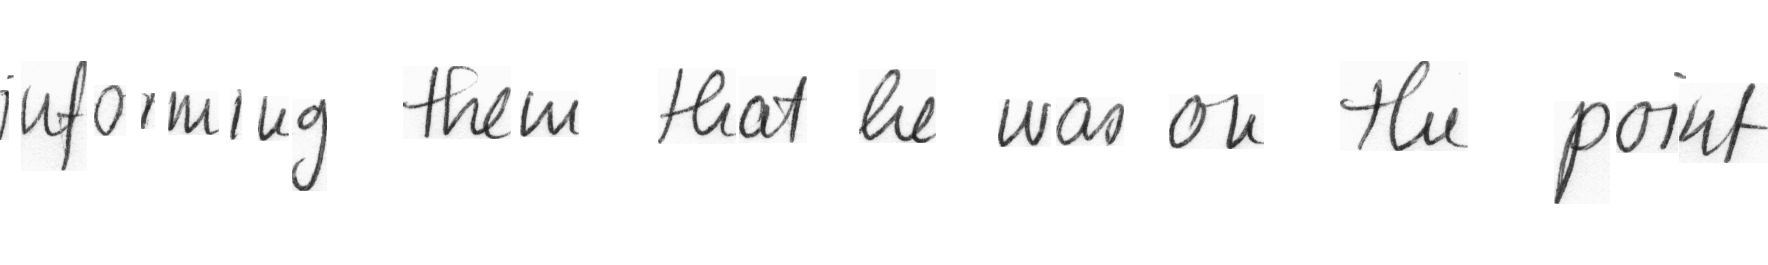 informing them that he was on the point